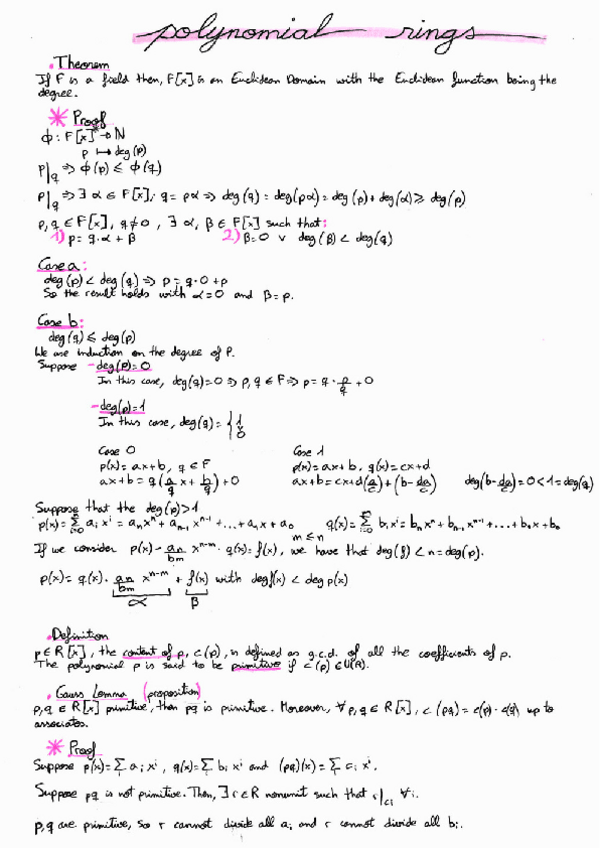 polynomial rings
. Theorem
If F is a field then, F[x] is an Euclidean Domain with the Euclidean function being the
degree.
* Proof
ϕ : F[x]* → N
p ↦ deg(p)
p|q ⇒ ϕ(p) ≤ ϕ(q)
p|q ⇒ ∃ α ∈ F[x]; q = pα ⇒ deg(q) = deg(pα) = deg(p) + deg(α) ≥ deg(p)
p, q ∈ F[x], q ≠ 0, ∃ α, β ∈ F[x] such that:
1) p = q·α + β 2) β = 0 ∨ deg(β) < deg(q)
Case a:
deg(p) < deg(q) ⇒ p = q·0 + p
So the result holds with α = 0 and β = p.
Case b:
deg(q) ≤ deg(p)
We use induction on the degree of P.
Suppose - deg(p) = 0
In this case, deg(q) = 0 ⇒ p, q ∈ F ⇒ p = q · p/q + 0
- deg(p) = 1
In this case, deg(q) = { 1 0
Case 0 Case 1
p(x) = ax+b, q ∈ F p(x) = ax+b, q(x) = cx+d
ax+b = q(a/q x + b/q) + 0 ax+b = cx+d(a/c) + (b - da/c) deg(b - da/c) = 0 < 1 = deg(q)
Suppose that the deg(p) > 1
p(x) = Σ aᵢ xⁱ = aₙxⁿ + aₙ₋₁xⁿ⁻¹ + ... + a₁x + a₀ q(x) = Σ bᵢ xⁱ = bₙxⁿ + bₙ₋₁xⁿ⁻¹ + ... + b₁x + b₀
m ≤ n
If we consider p(x) - aₙ/bₘ xⁿ⁻ᵐ · q(x) = f(x), we have that deg(f) < n = deg(p).
p(x) = q(x) · aₙ/bₘ xⁿ⁻ᵐ + f(x) with deg f(x) < deg p(x)
α β
. Definition
p ∈ R[x], the content of p, c(p), is defined as g.c.d. of all the coefficients of p.
The polynomial p is said to be primitive if c(p) ∈ U(R).
. Gauss Lemma (proposition)
p, q ∈ R[x] primitive, then pq is primitive. Moreover, ∀ p, q ∈ R[x], c(pq) = c(p)·c(q) up to
associates.
* Proof
Suppose p(x) = Σ aᵢ xⁱ, q(x) = Σ bᵢ xⁱ and (pq)(x) = Σ cᵢ xⁱ.
Suppose pq is not primitive. Then, ∃ r ∈ R nonunit such that r|cᵢ ∀i.
p, q are primitive, so r cannot divide all aᵢ and r cannot divide all bᵢ.